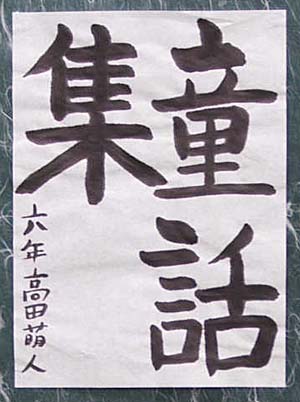 童話
集
六年高田萌人